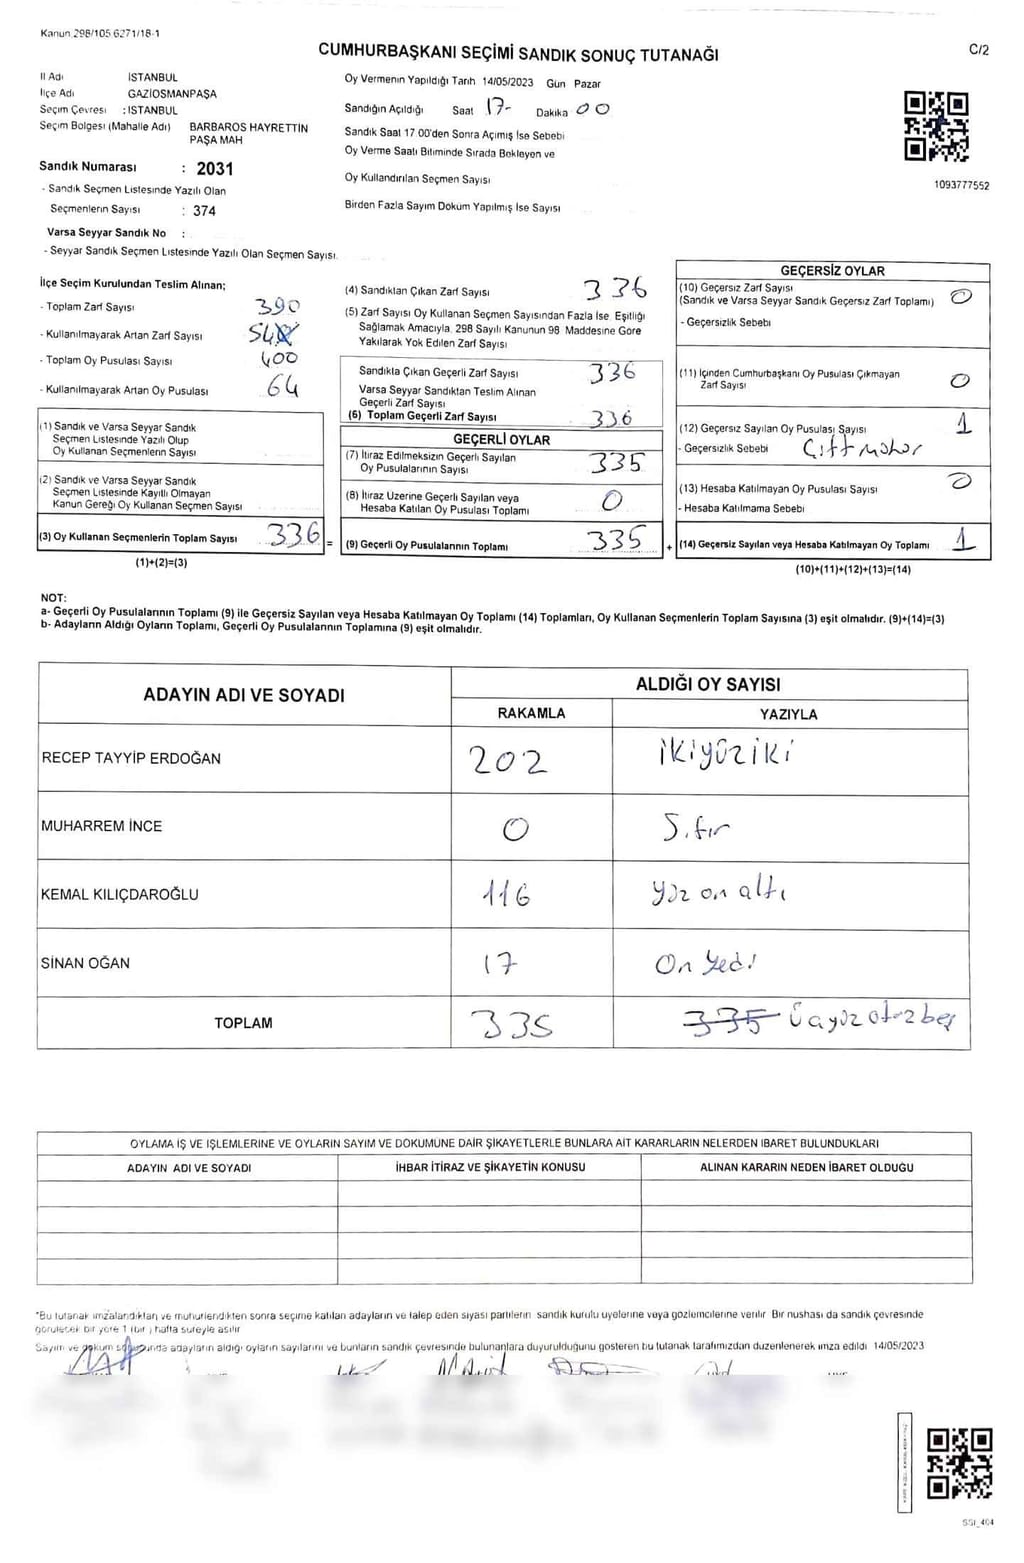 Kanun 298/105 6271/18-1
CUMHURBAŞKANI SEÇİMİ SANDIK SONUÇ TUTANAĞI
C/2
İl Adı İSTANBUL
İlçe Adı GAZİOSMANPAŞA
Seçim Çevresi : İSTANBUL
Seçim Bölgesi (Mahalle Adı) BARBAROS HAYRETTİN
PAŞA MAH
Sandık Numarası : 2031
- Sandık Seçmen Listesinde Yazılı Olan
Seçmenlerin Sayısı : 374
Varsa Seyyar Sandık No :
- Seyyar Sandık Seçmen Listesinde Yazılı Olan Seçmen Sayısı
Oy Vermenin Yapıldığı Tarih 14/05/2023 Gün Pazar
Sandığın Açıldığı Saat 17- Dakika 00
Sandık Saat 17 00'den Sonra Açımış İse Sebebi
Oy Verme Saatı Bitiminde Sırada Bekleyen ve
Oy Kullandırılan Seçmen Sayısı
Birden Fazla Sayım Döküm Yapılmış İse Sayısı
1093777552
İlçe Seçim Kurulundan Teslim Alınan;
- Toplam Zarf Sayısı 390
- Kullanılmayarak Artan Zarf Sayısı 54
- Toplam Oy Pusulası Sayısı 400
- Kullanılmayarak Artan Oy Pusulası 64
(1) Sandık ve Varsa Seyyar Sandık
Seçmen Listesinde Yazılı Olup
Oy Kullanan Seçmenlerin Sayısı
(2) Sandık ve Varsa Seyyar Sandık
Seçmen Listesinde Kayıtlı Olmayan
Kanun Gereği Oy Kullanan Seçmen Sayısı
(3) Oy Kullanan Seçmenlerin Toplam Sayısı 336 =
(1)+(2)=(3)
(4) Sandıktan Çıkan Zarf Sayısı 336
(5) Zarf Sayısı Oy Kullanan Seçmen Sayısından Fazla İse Eşitliği
Sağlamak Amacıyla 298 Sayılı Kanunun 98 Maddesine Göre
Yakılarak Yok Edilen Zarf Sayısı
Sandıkta Çıkan Geçerli Zarf Sayısı 336
Varsa Seyyar Sandıktan Teslim Alınan
Geçerli Zarf Sayısı
(6) Toplam Geçerli Zarf Sayısı 336
GEÇERLİ OYLAR
(7) İtiraz Edilmeksizin Geçerli Sayılan
Oy Pusulalarının Sayısı 335
(8) İtiraz Üzerine Geçerli Sayılan veya
Hesaba Katılan Oy Pusulası Toplamı 0
(9) Geçerli Oy Pusulalarının Toplamı 335 +
GEÇERSİZ OYLAR
(10) Geçersiz Zarf Sayısı
(Sandık ve Varsa Seyyar Sandık Geçersiz Zarf Toplamı) 0
- Geçersizlik Sebebi
(11) İçinden Cumhurbaşkanı Oy Pusulası Çıkmayan
Zarf Sayısı 0
(12) Geçersiz Sayılan Oy Pusulası Sayısı 1
- Geçersizlik Sebebi Çift mühür
(13) Hesaba Katılmayan Oy Pusulası Sayısı 0
- Hesaba Katılmama Sebebi
(14) Geçersiz Sayılan veya Hesaba Katılmayan Oy Toplamı 1
(10)+(11)+(12)+(13)=(14)
NOT:
a- Geçerli Oy Pusulalarının Toplamı (9) ile Geçersiz Sayılan veya Hesaba Katılmayan Oy Toplamı (14) Toplamları, Oy Kullanan Seçmenlerin Toplam Sayısına (3) eşit olmalıdır. (9)+(14)=(3)
b- Adayların Aldığı Oyların Toplamı, Geçerli Oy Pusulalarının Toplamına (9) eşit olmalıdır.
ADAYIN ADI VE SOYADI ALDIĞI OY SAYISI
RAKAMLA YAZIYLA
RECEP TAYYİP ERDOĞAN 202 ikiyüziki
MUHARREM İNCE 0 Sıfır
KEMAL KILIÇDAROĞLU 116 yüz on altı
SİNAN OĞAN 17 On yedi
TOPLAM 335 335 Üçyüz otuz beş
OYLAMA İŞ VE İŞLEMLERİNE VE OYLARIN SAYIM VE DÖKÜMÜNE DAİR ŞİKAYETLERLE BUNLARA AİT KARARLARIN NELERDEN İBARET BULUNDUKLARI
ADAYIN ADI VE SOYADI İHBAR İTİRAZ VE ŞİKAYETİN KONUSU ALINAN KARARIN NEDEN İBARET OLDUĞU
*Bu tutanak imzalandıktan ve mühürlendikten sonra seçime katılan adayların ve talep eden siyasi partilerin sandık kurulu üyelerine veya gözlemcilerine verilir Bir nüshası da sandık çevresinde
görülecek bir yere 1 (bir) hafta süreyle asılır
Sayım ve döküm sonunda adayların aldığı oyların sayılarını ve bunların sandık çevresinde bulunanlara duyurulduğunu gösteren bu tutanak tarafımızdan düzenlenerek imza edildi 14/05/2023
SSI_404